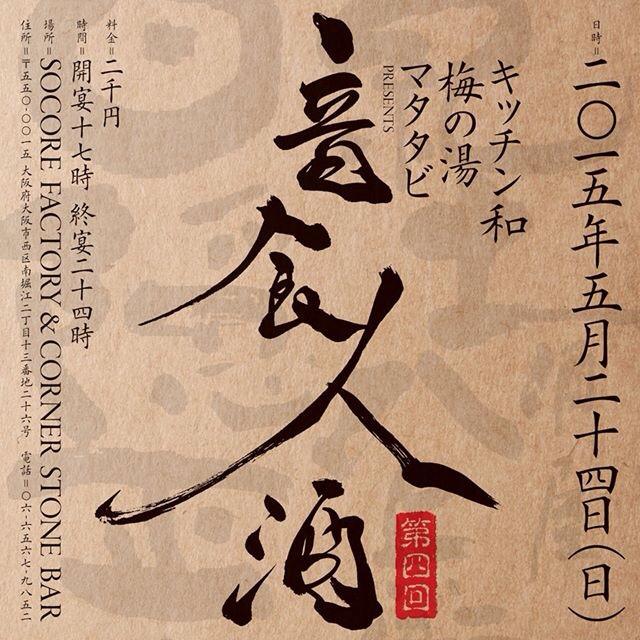 日時＝二〇一五年五月二十四日（日）
キッチン和
梅の湯
マタタビ
PRESENTS
音食人酒
第四回
料金＝二千円
時間＝開宴十七時 終宴二十四時
場所＝SOCORE FACTORY & CORNER STONE BAR
住所＝〒五五〇-〇〇一五 大阪府大阪市西区南堀江二丁目十三番地二十六号 電話＝〇六-六五六七-九八五二